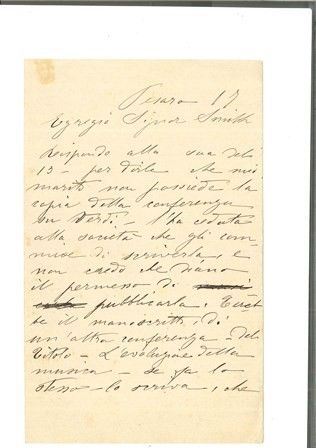 Pesaro 17
Egregio Signor Smith
Rispondo alla sua del
13 - per dirle che mio
marito non possiede la
copia della conferenza
su Verdi - l'ha ceduta
alla società che gli com-
mise di scriverla, e
non credo che diano
il permesso di
pubblicarla.
be il manoscritto, di
un'altra conferenza - dal
titolo - L'evoluzione della
musica - se fa lo
stesso lo scriva, che